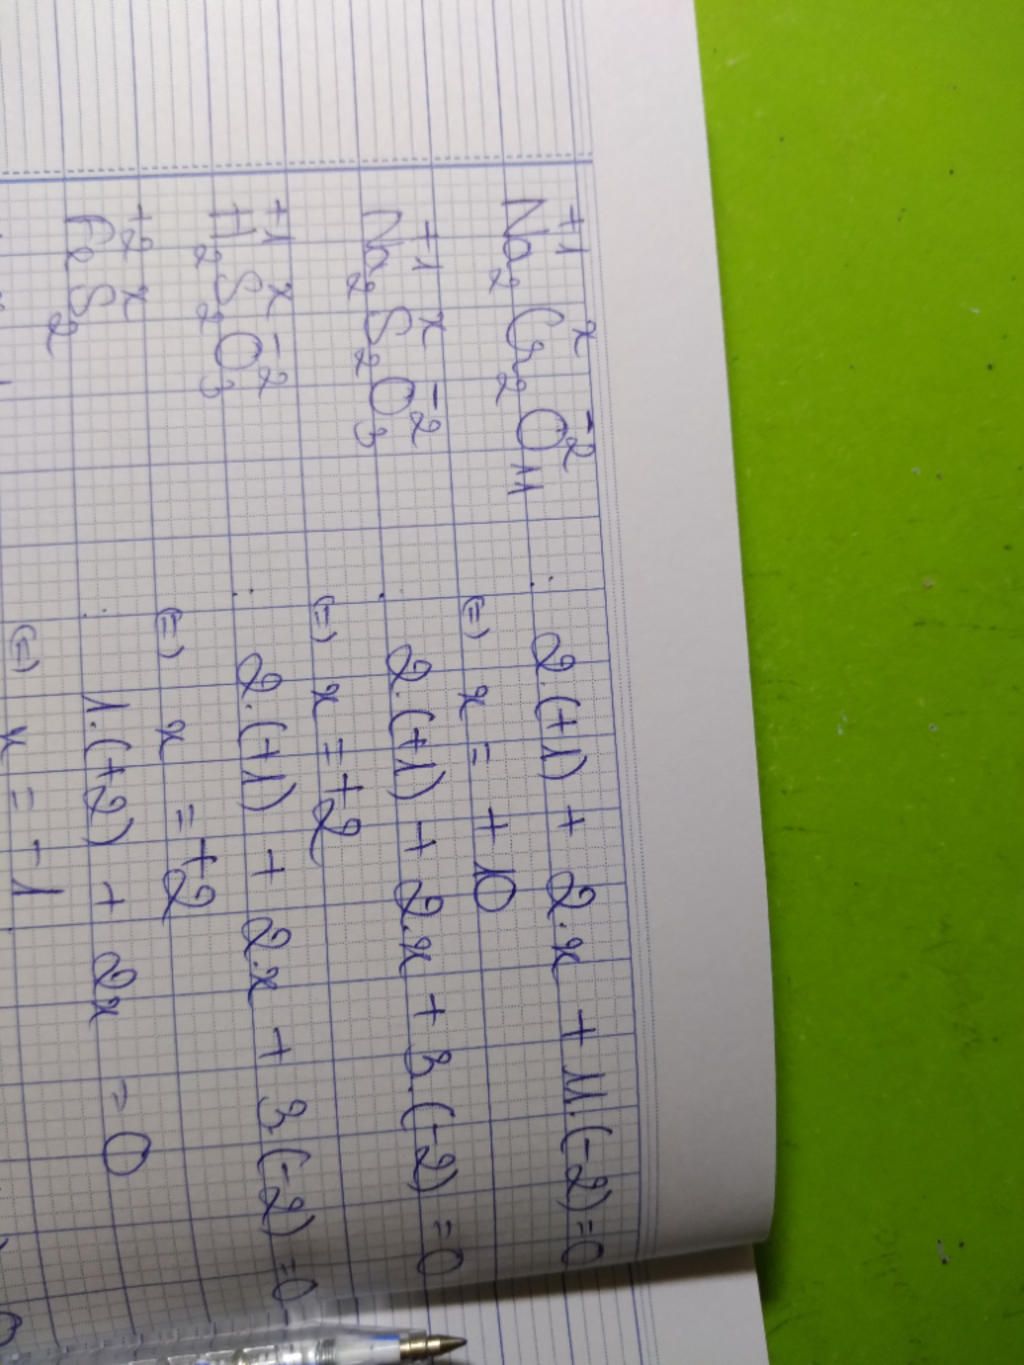 +1 x -2
Na₂Cr₂O₁₁ : 2(+1) + 2.x + 11.(-2)=0
(=) x = +10
+1 x -2
Na₂S₂O₃ : 2.(+1) + 2.x + 3.(-2) = 0
(=) x = +2
+1 x -2
H₂S₂O₃ : 2.(+1) + 2.x + 3.(-2) = 0
(=) x = +2
+2 x
FeS₂ : 1.(+2) + 2x = 0
(=) x = -1